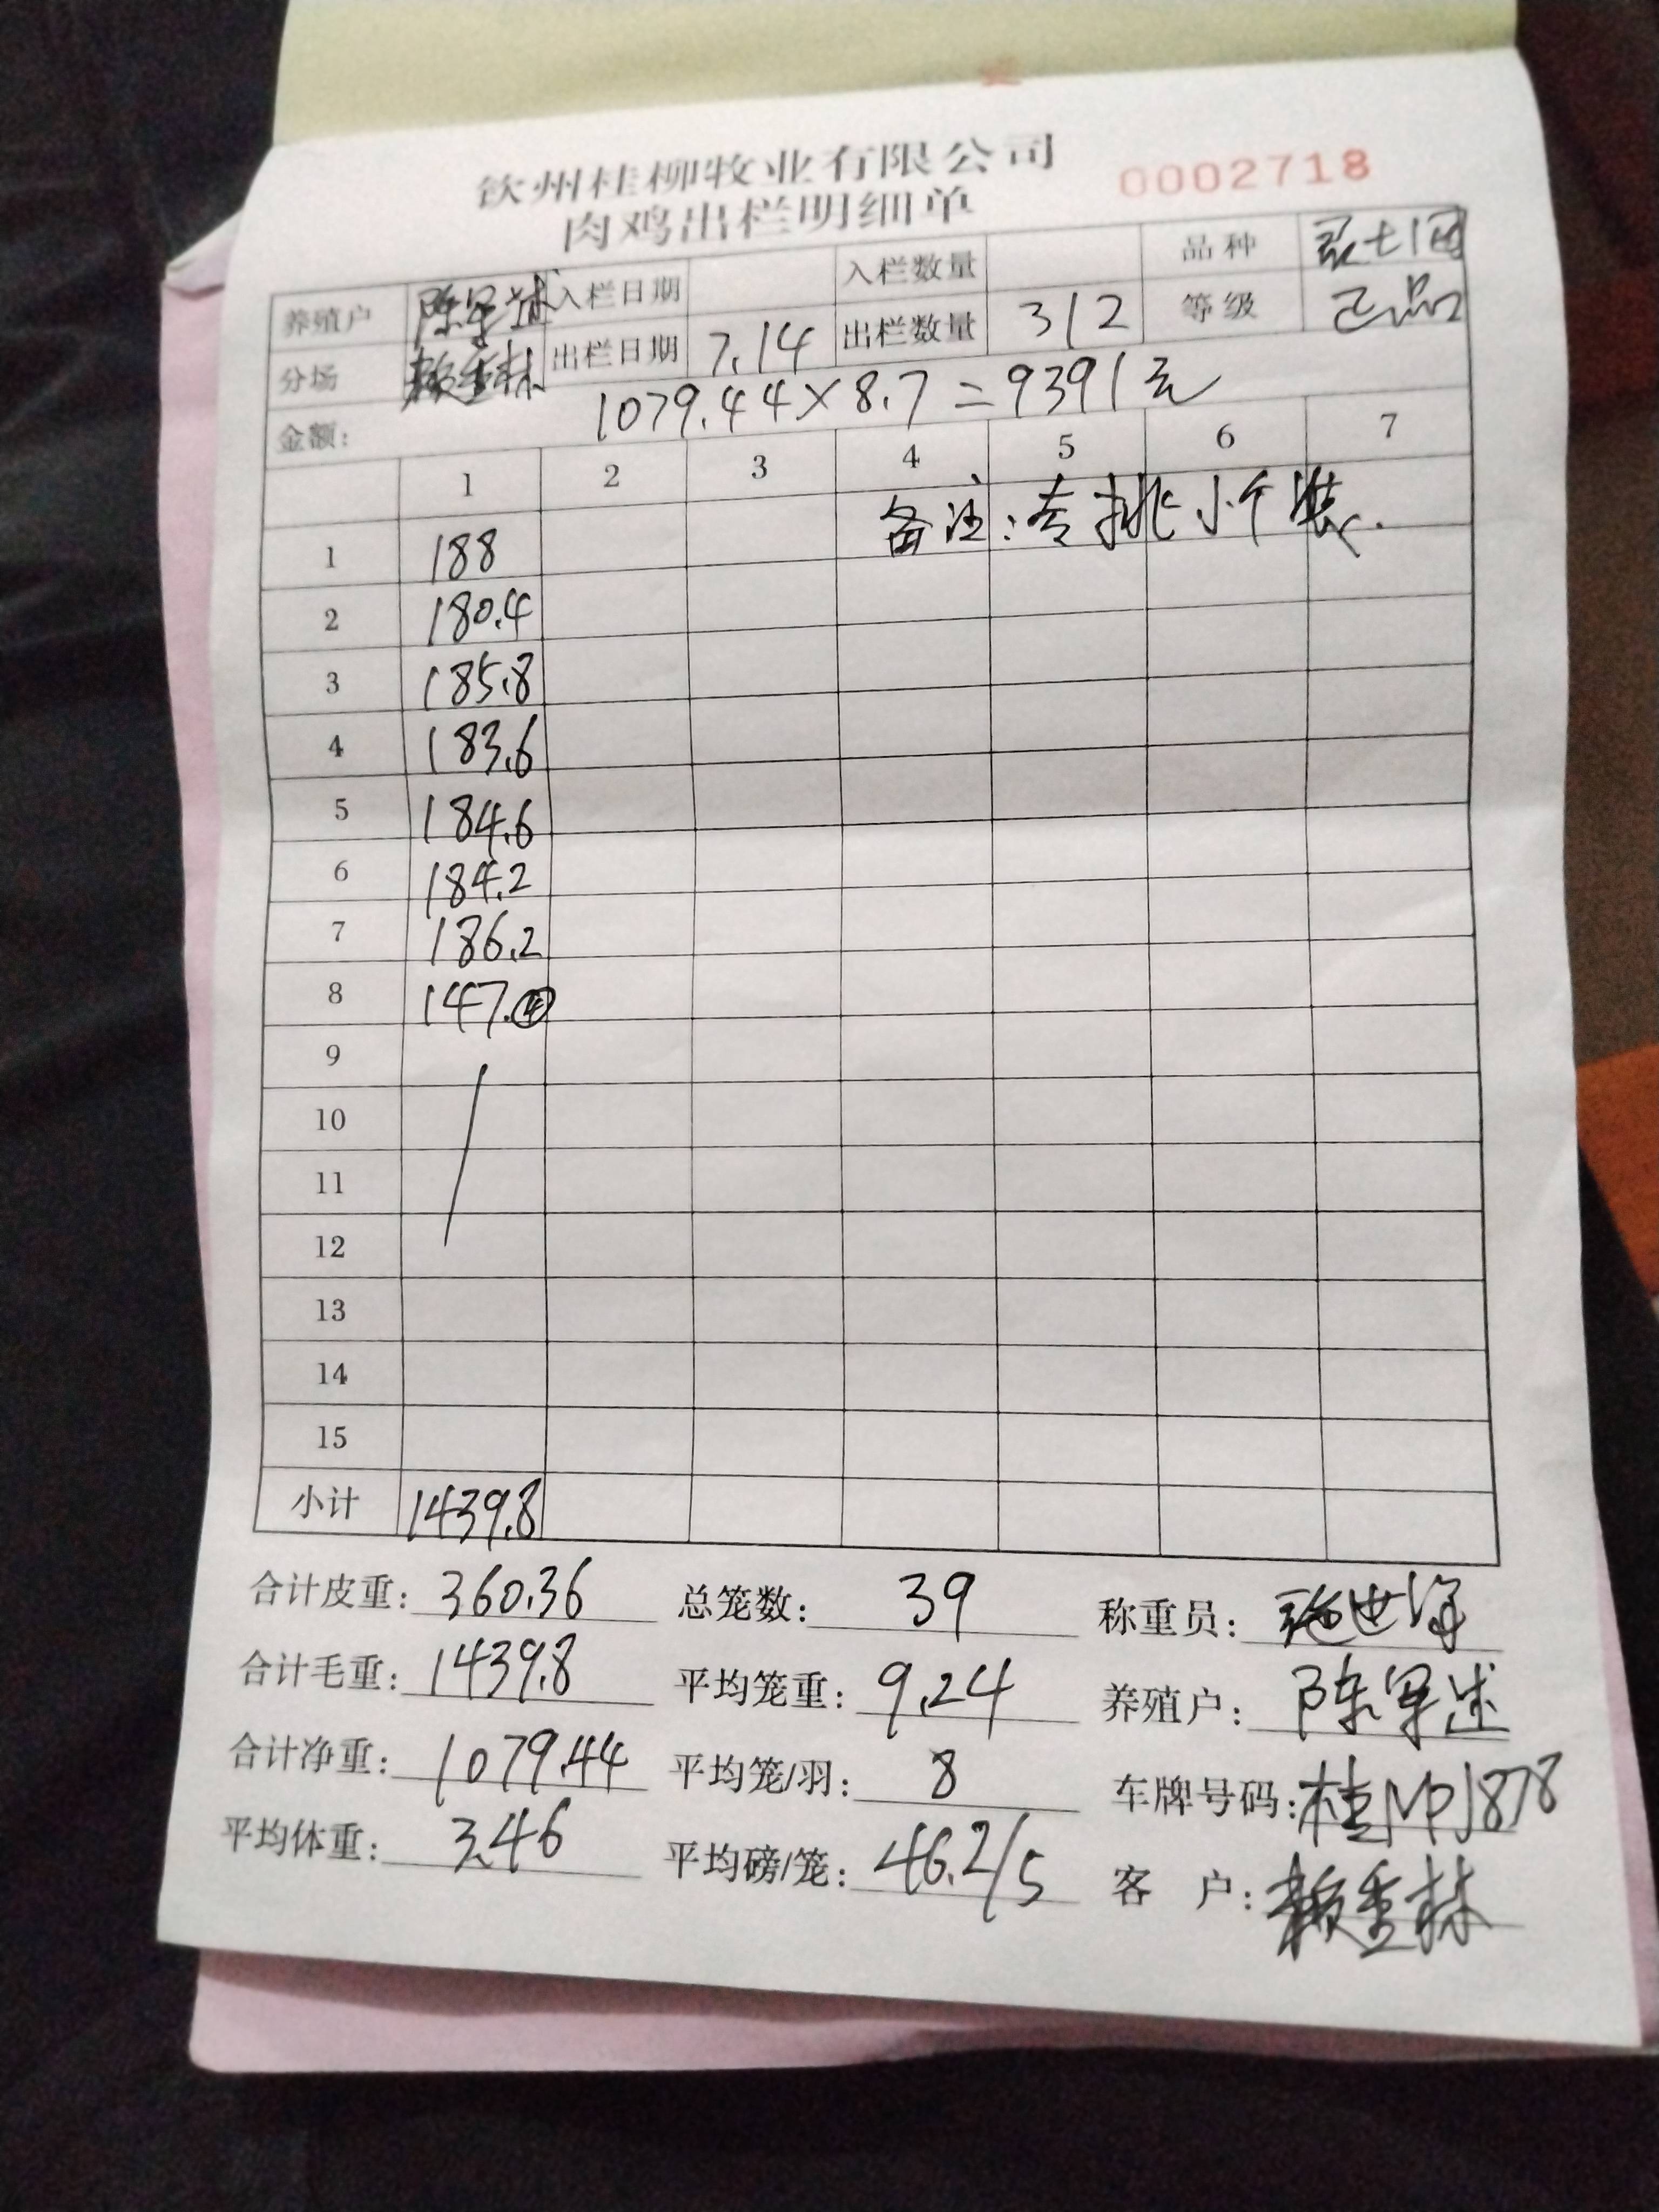 钦州桂柳牧业有限公司
肉鸡出栏明细单
0002718
养殖户 陈军述 入栏日期 入栏数量 品种 灵土1阉
分场 赖重林 出栏日期 7.14 出栏数量 312 等级 乙品
金额: 1079.44×8.7=9391元
1 2 3 4 5 6 7
备注:专挑小个装.
1 188
2 180.4
3 185.8
4 183.6
5 184.6
6 184.2
7 186.2
8 147.④
9
10
11
12
13
14
15
小计 1439.8
合计皮重: 360.36 总笼数: 39 称重员: 世海
合计毛重: 1439.8 平均笼重: 9.24 养殖户: 陈军述
合计净重: 1079.44 平均笼/羽: 8 车牌号码: 桂NPJ878
平均体重: 3.46 平均磅/笼: 46.2/5 客 户: 赖重林